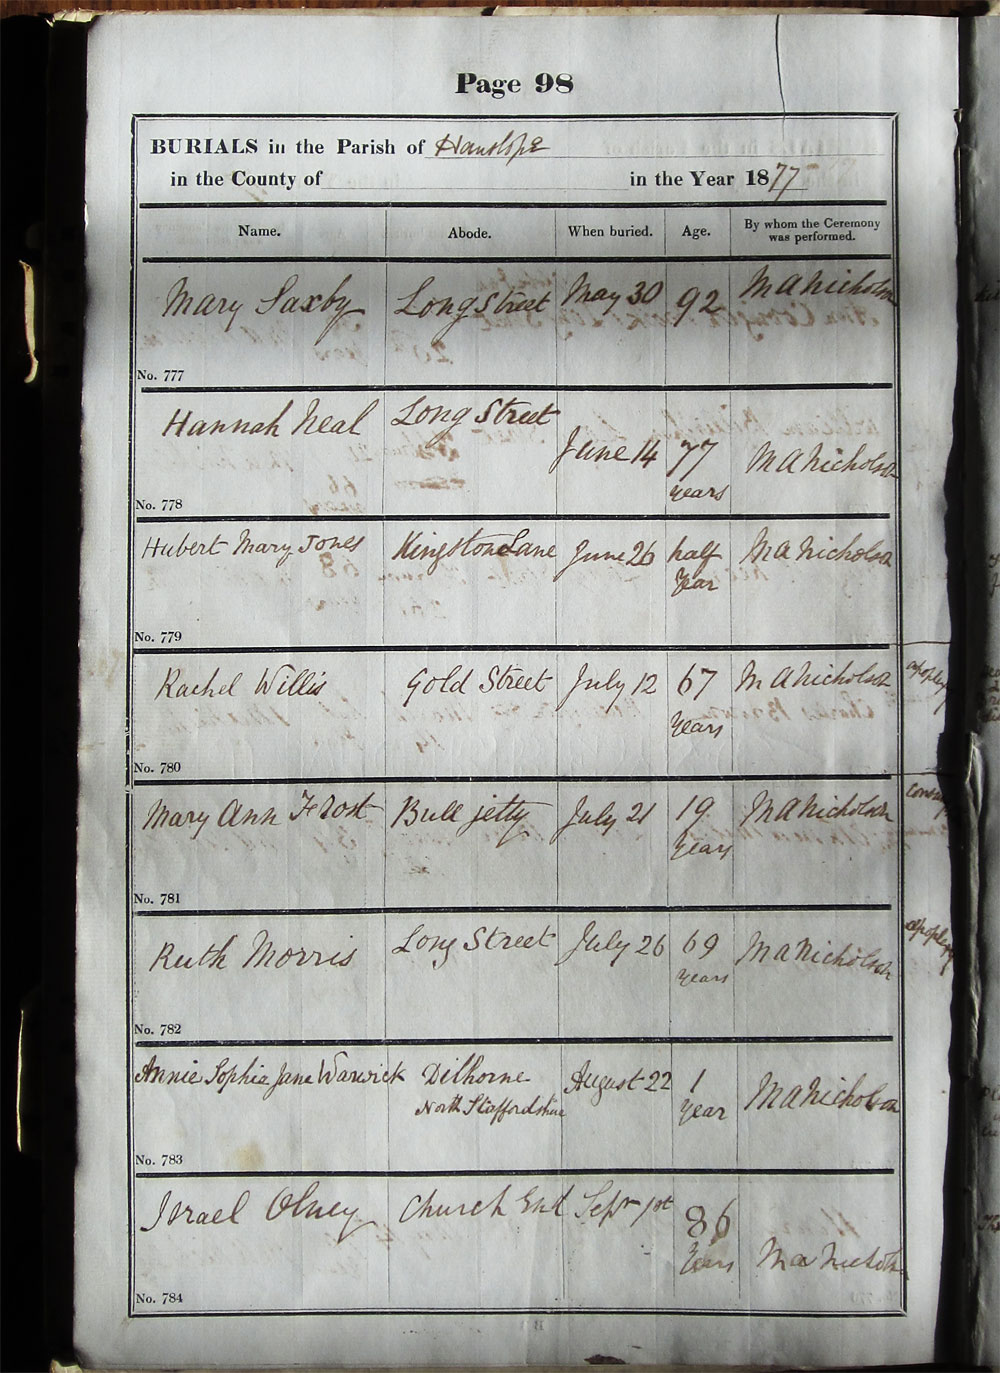 Page 98
BURIALS in the Parish of Hanslope
in the County of in the Year 1877
Name. Abode. When buried. Age. By whom the Ceremony was performed.
Mary Saxby Long Street May 30 92 M A Nicholson
No. 777
Hannah Neal Long Street June 14 77 years M A Nicholson
No. 778
Hubert Mary Jones Kingstone Lane June 26 half Year M A Nicholson
No. 779
Rachel Willis Gold Street July 12 67 Years M A Nicholson apoplexy
No. 780
Mary Ann Frost Bull jetty July 21 19 years M A Nicholson
No. 781
Ruth Morris Long Street July 26 69 years M A Nicholson apoplexy
No. 782
Annie Sophia Jane Warwick Dilhorne North Staffordshire August 22 1 Year M A Nicholson
No. 783
Israel Olney Church End Septr 1st 86 Years M A Nicholson
No. 784